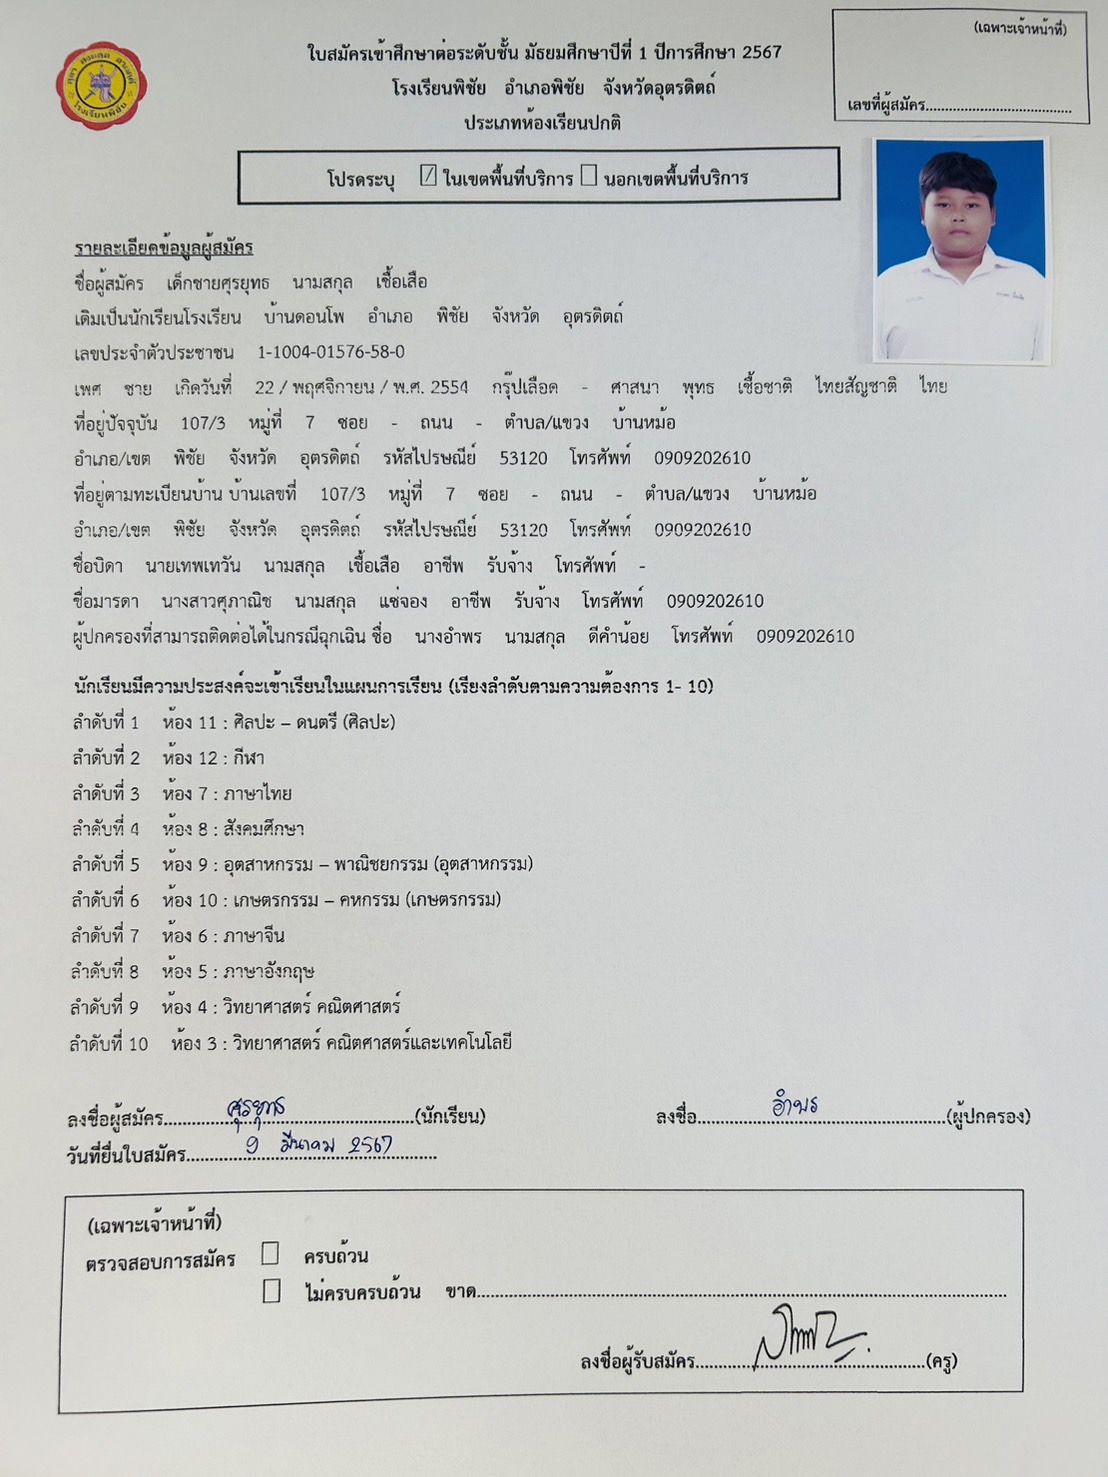 (เฉพาะเจ้าหน้าที่)
เลขที่ผู้สมัคร........................................
ใบสมัครเข้าศึกษาต่อระดับชั้น มัธยมศึกษาปีที่ 1 ปีการศึกษา 2567
โรงเรียนพิชัย อำเภอพิชัย จังหวัดอุตรดิตถ์
ประเภทห้องเรียนปกติ
โปรดระบุ ☑ ในเขตพื้นที่บริการ ☐ นอกเขตพื้นที่บริการ
รายละเอียดข้อมูลผู้สมัคร
ชื่อผู้สมัคร เด็กชายศุรยุทธ นามสกุล เชื้อเสือ
เดิมเป็นนักเรียนโรงเรียน บ้านดอนโพ อำเภอ พิชัย จังหวัด อุตรดิตถ์
เลขประจำตัวประชาชน 1-1004-01576-58-0
เพศ ชาย เกิดวันที่ 22 / พฤศจิกายน / พ.ศ. 2554 กรุ๊ปเลือด - ศาสนา พุทธ เชื้อชาติ ไทยสัญชาติ ไทย
ที่อยู่ปัจจุบัน 107/3 หมู่ที่ 7 ซอย - ถนน - ตำบล/แขวง บ้านหม้อ
อำเภอ/เขต พิชัย จังหวัด อุตรดิตถ์ รหัสไปรษณีย์ 53120 โทรศัพท์ 0909202610
ที่อยู่ตามทะเบียนบ้าน บ้านเลขที่ 107/3 หมู่ที่ 7 ซอย - ถนน - ตำบล/แขวง บ้านหม้อ
อำเภอ/เขต พิชัย จังหวัด อุตรดิตถ์ รหัสไปรษณีย์ 53120 โทรศัพท์ 0909202610
ชื่อบิดา นายเทพเทวัน นามสกุล เชื้อเสือ อาชีพ รับจ้าง โทรศัพท์ -
ชื่อมารดา นางสาวศุภาณิช นามสกุล แซ่จอง อาชีพ รับจ้าง โทรศัพท์ 0909202610
ผู้ปกครองที่สามารถติดต่อได้ในกรณีฉุกเฉิน ชื่อ นางอำพร นามสกุล ดีคำน้อย โทรศัพท์ 0909202610
นักเรียนมีความประสงค์จะเข้าเรียนในแผนการเรียน (เรียงลำดับตามความต้องการ 1- 10)
ลำดับที่ 1 ห้อง 11 : ศิลปะ – ดนตรี (ศิลปะ)
ลำดับที่ 2 ห้อง 12 : กีฬา
ลำดับที่ 3 ห้อง 7 : ภาษาไทย
ลำดับที่ 4 ห้อง 8 : สังคมศึกษา
ลำดับที่ 5 ห้อง 9 : อุตสาหกรรม – พาณิชยกรรม (อุตสาหกรรม)
ลำดับที่ 6 ห้อง 10 : เกษตรกรรม – คหกรรม (เกษตรกรรม)
ลำดับที่ 7 ห้อง 6 : ภาษาจีน
ลำดับที่ 8 ห้อง 5 : ภาษาอังกฤษ
ลำดับที่ 9 ห้อง 4 : วิทยาศาสตร์ คณิตศาสตร์
ลำดับที่ 10 ห้อง 3 : วิทยาศาสตร์ คณิตศาสตร์และเทคโนโลยี
ลงชื่อผู้สมัคร....ศุรยุทธ....(นักเรียน) ลงชื่อ....อำพร....(ผู้ปกครอง)
วันที่ยื่นใบสมัคร....9 มีนาคม 2567....
(เฉพาะเจ้าหน้าที่)
ตรวจสอบการสมัคร ☐ ครบถ้วน
☐ ไม่ครบครบถ้วน ขาด........................................
ลงชื่อผู้รับสมัคร........................................(ครู)